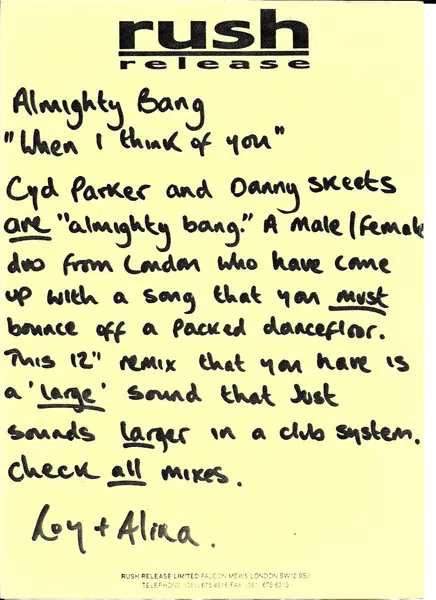 rush
release
Almighty Bang
"When I think of you"
Cyd Parker and Danny Skeets
are "almighty bang." A male/female
duo from London who have come
up with a song that you must
bounce off a packed dancefloor.
This 12" remix that you have is
a 'large' sound that just
sounds larger in a club system.
Check all mixes.
Roy + Alina.
RUSH RELEASE LIMITED FALCON MEWS LONDON SW12 9SJ
TELEPHONE (081) FAX (081)